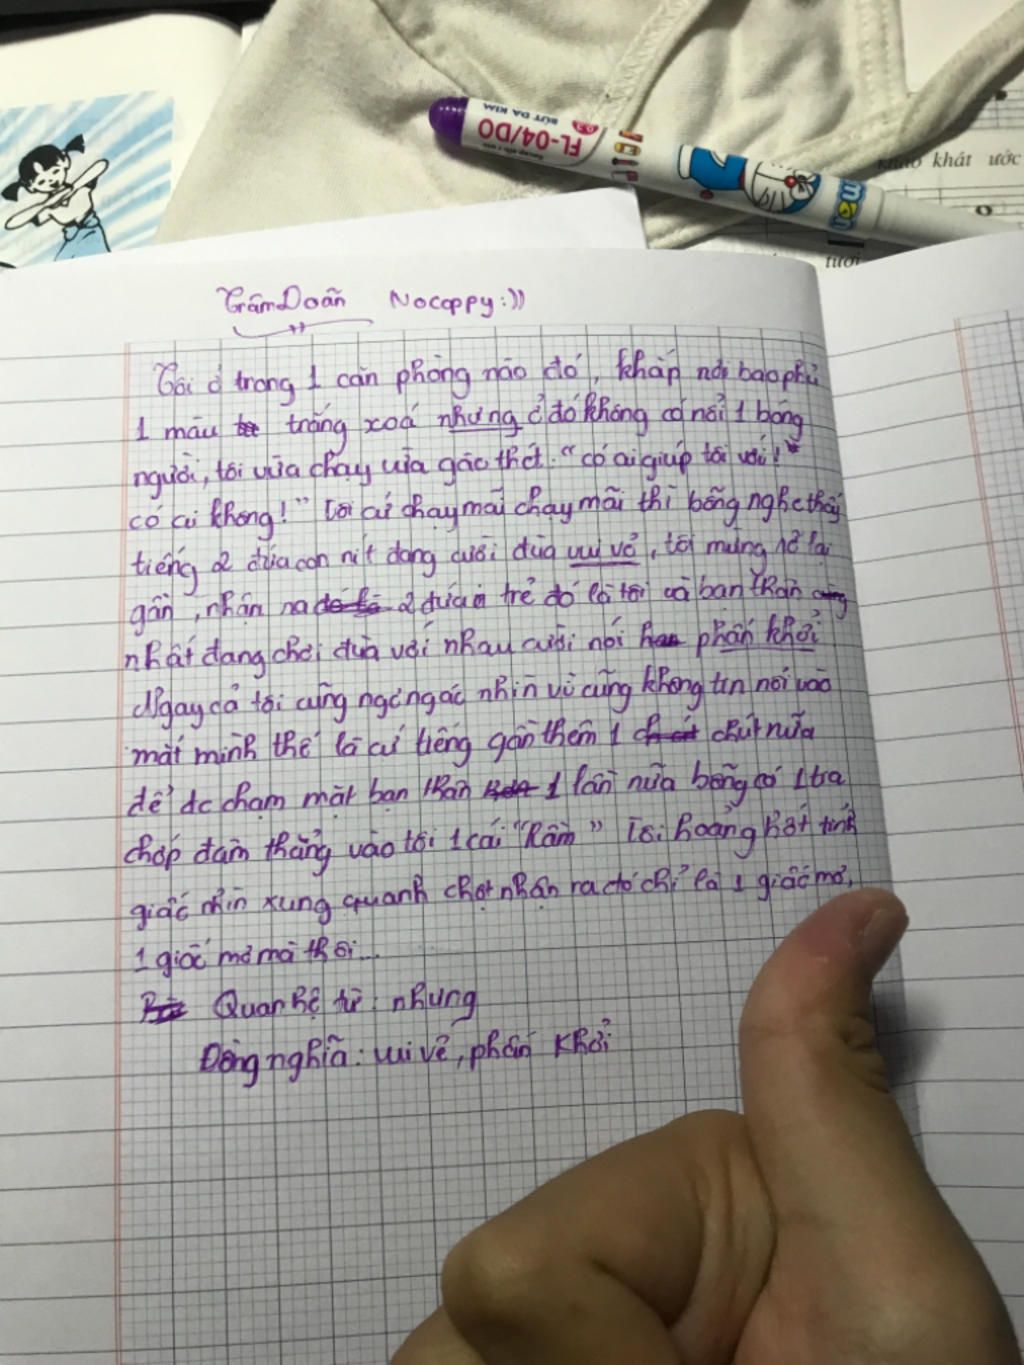 BÚT DẠ KIM
FL-04/DO
0.3
mon
khao khát ước
tươi
TrâmDoãn Nocoppy:))
Tôi ở trong 1 căn phòng nào đó, khắp nơi bao phủ
1 màu trắng xoá nhưng ở đó không có nổi 1 bóng
người, tôi vừa chạy vừa gào thét. "có ai giúp tôi với!
có ai không!" Tôi cứ chạy mãi chạy mãi thì bỗng nghe thấy
tiếng 2 đứa con nít đang cười đùa vui vẻ, tôi mừng rỡ lại
gần, nhận ra 2 đứa trẻ đó là tôi và bạn thân
nhất đang chơi đùa với nhau cười nói phấn khởi
Ngay cả tôi cũng ngơ ngác nhìn vì cũng không tin nổi vào
mắt mình thế là cứ tiếng gần thêm 1 chút nữa
để dc chạm mặt bạn thân 1 lần nữa bỗng có 1 tia
chớp đam thẳng vào tôi 1 cái "Rầm" Tôi hoảng hốt tỉnh
giấc nhìn xung quanh chợt nhận ra đó chỉ là 1 giấc mơ,
1 giấc mơ mà thôi...
Quan hệ từ: nhưng
Đồng nghĩa: vui vẻ, phấn khởi